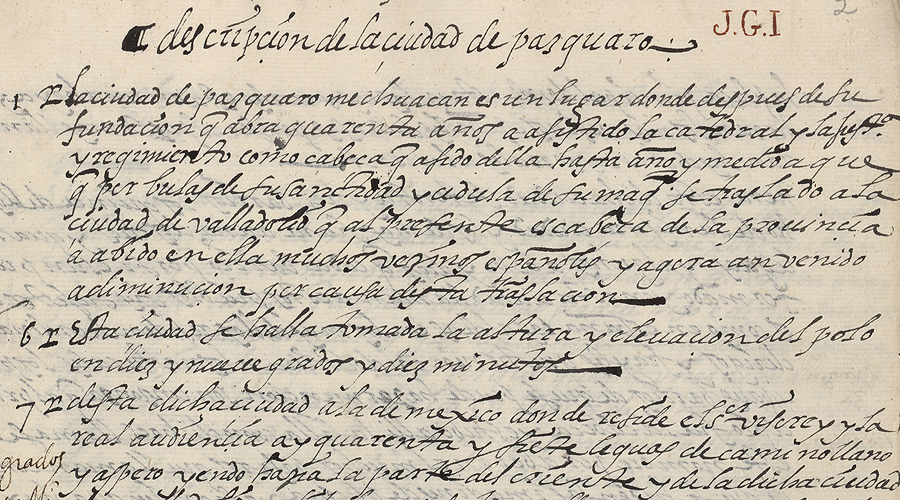 descripcion de la ciudad de pasquaro
J.G.I
2
1 la ciudad de pasquaro mechuacan es un lugar donde despues de su
fundacion q abra quarenta años a asistido la catedral y la just.ª
y regimiento como cabeca q a sido della hasta año y medio a que
q por bulas de su santidad y cedula de su mag se traslado a la
ciudad de valladolid q al presente es cabeca de la provincia
a abido en ella muchos vezinos españoles y agora an venido
a diminucion por causa desta traslacion
6 Esta ciudad se halla tomada la altura y elevacion del polo
en diez y nueve grados y diez minutos
7 desta dicha ciudad a la de mexico donde reside el s.or visorey y la
real audiencia ay quarenta y siete leguas de camino llano
grados
y aspero yendo hazia la parte del oriente y de la dicha ciudad